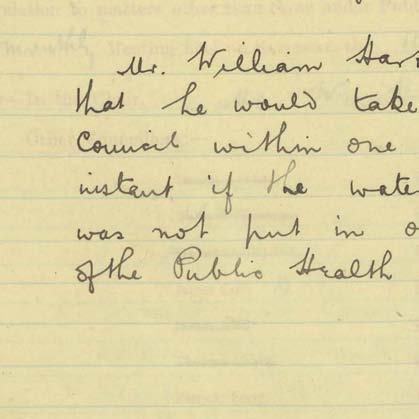 Mr. William Har
that he would take
Council within one
instant if the wate
was not put in o
of the Public Health